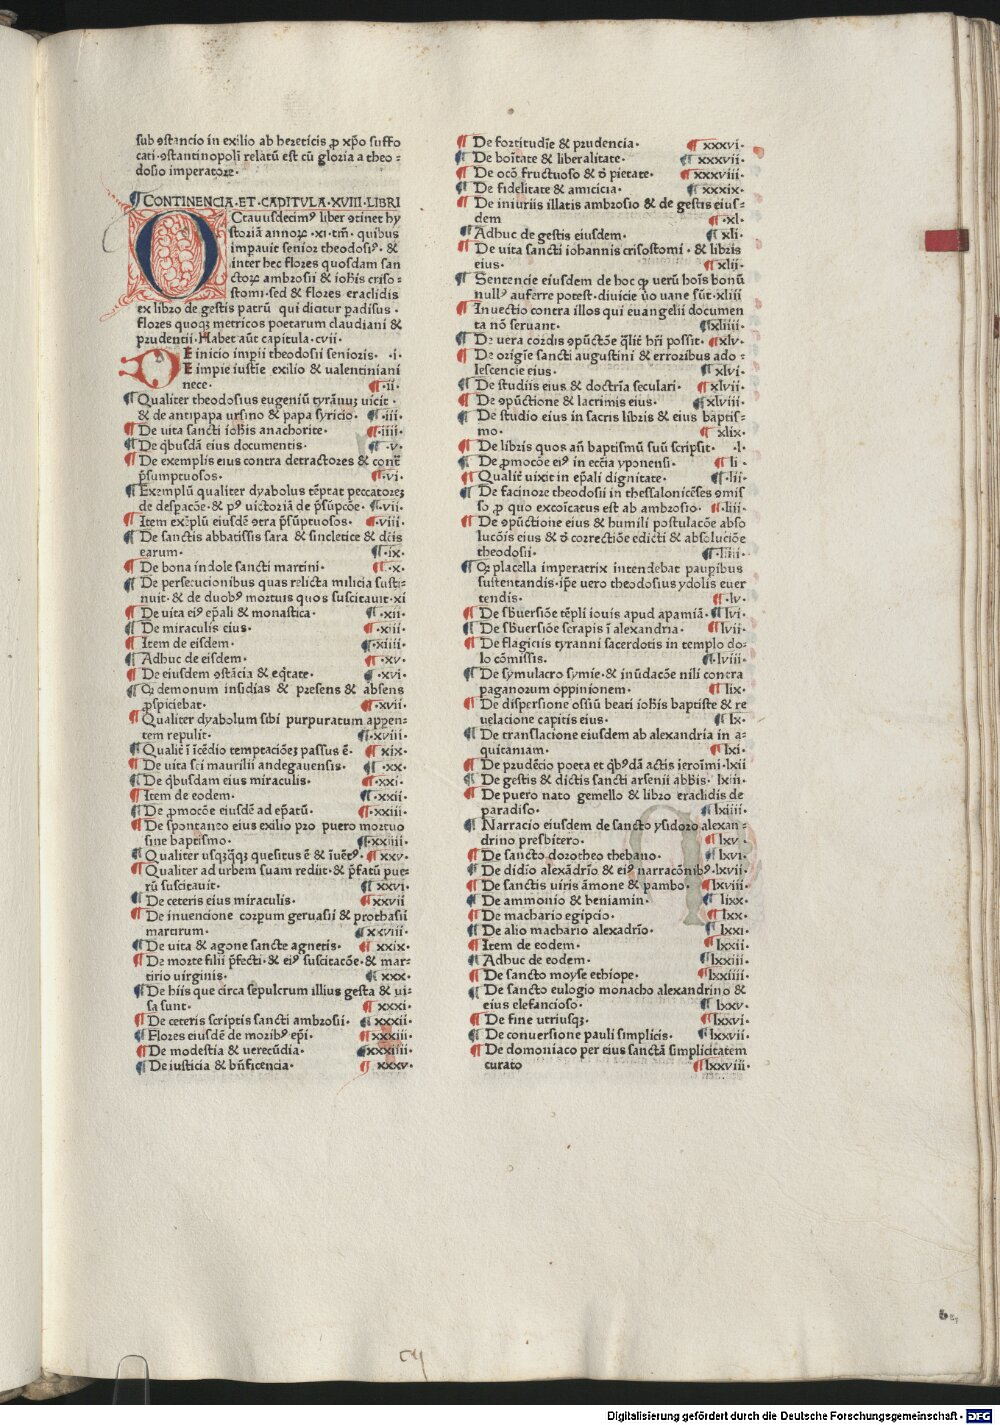 sub ꝯstancio in exilio ab hereticis ꝓ xp̄o suffo
cati·ꝯstantinopoli relatū est cū gloria a theo-
dosio imperatore·
¶CONTINENCIA·ET·CAPITULA·XVIII·LIBRI
OCtauusdecimꝰ liber ꝯtinet hy
storiā annoꝝ·xi·tm̄· quibus
impauit senior theodosiꝰ· &
inter hec flores quosdam san
ctoꝝ ambrosii & ioh̄is criso-
stomi·sed & flores eraclidis
ex libro de gestis patrū qui dicitur padisus·
flores quoqꝫ metricos poetarum claudiani &
prudentii·Habet aūt capitula·cvii·
DE inicio impii theodosii senioris· ·i·
E impie iustīe exilio & ualentiniani
nece· ¶·ii·
¶Qualiter theodosius eugeniū tyrānuꝫ uicit·
& de antipapa ursino & papa syricio· ¶·iii·
¶De vita sancti ioh̄is anachorite· ¶·iiii·
¶De q̄busdā eius documentis· ¶·v·
¶De exemplis eius contra detractores & cont̄
p̄sumptuosos· ¶·vi·
¶Exemplū qualiter dyabolus tēptat peccatoreꝫ
de despacōe· & pꝰ victoriā de p̄supcōe· ¶·vii·
¶Item exēplū eiusdē ꝯtra p̄sūptuosos· ¶·viii·
¶De sanctis abbatissis sara & sincletice & dc̄is
earum· ¶·ix·
¶De bona indole sancti martini· ¶·x·
¶De persecucionibus quas relicta milicia susti-
nuit· & de duobꝰ mortuis quos suscitauit·xi
¶De uita eiꝰ ep̄ali & monastica· ¶·xii·
¶De miraculis eius· ¶·xiii·
¶Item de eisdem· ¶·xiiii·
¶Adhuc de eisdem· ¶·xv·
¶De eiusdem ꝯstācia & eq̄tate· ¶·xvi·
¶Q demonum insidias & presens & absens
ꝓspiciebat· ¶·xvii·
¶Qualiter dyabolum sibi purpuratum appen-
tem repulit· ¶·xviii·
¶Qualit̄ ī īcēdio temptacōeꝫ passus ē· ¶xix·
¶De uita sc̄i maurilii andegauensis· ¶·xx·
¶De q̄busdam eius miraculis· ¶·xxi·
¶Item de eodem· ¶·xxii·
¶De ꝓmocōe eiusdē ad ep̄atū· ¶·xxiii·
¶De spontaneo eius exilio pro puero mortuo
sine baptismo· ¶·xxiiii·
¶Qualiter usqꝫqqꝫ quesitus ē & īuētꝰ· ¶xxv·
¶Qualiter ad urbem suam rediit·& p̄fatū pue-
rū suscitauit· ¶xxvi·
¶De ceteris eius miraculis· ¶xxvii
¶De inuencione corpum geruasii & prothasii
martirum· ¶xxviii·
¶De uita & agone sancte agnetis· ¶xxix·
¶De morte filii p̄fecti·& eiꝰ suscitacōe·& mar-
tirio uirginis· ¶xxx·
¶De hiis que circa sepulcrum illius gesta & ui-
sa sunt· ¶xxxi·
¶De ceteris scriptis sancti ambrosii· ¶xxxii·
¶Flores eiusdē de moribꝰ ep̄i· ¶xxxiii·
¶De modestia & uerecūdia· ¶xxxiiii·
¶De iusticia & bn̄ficencia· ¶xxxv·
¶De fortitudīe & prudencia· ¶xxxvi·
¶De boītate & liberalitate· ¶xxxvii·
¶De ocō fructuoso & ꝺ pietate· ¶xxxviii·
¶De fidelitate & amicicia· ¶xxxix·
¶De iniuriis illatis ambrosio & de gestis eius-
dem ¶·xl·
¶Adhuc de gestis eiusdem· ¶xli·
¶De uita sancti iohannis crisostomi·& libris
eius· ¶xlii·
¶Sentencie eiusdem de hoc ꝙ uerū hoīs bonū
nullꝰ auferre potest·diuicie ūo uane sūt·xliii
¶Inuectio contra illos qui euangelii documen
ta nō seruant· ¶xliiii·
¶De uera cordis ꝯpūctōe q̄lit̄ hr̄i possit· ¶xlv·
¶De origīe sancti augustini & erroribus ado-
lescencie eius· ¶xlvi·
¶De studiis eius & doctrīa seculari· ¶xlvii·
¶De ꝯpūctione & lacrimis eius· ¶xlviii·
¶De studio eius in sacris libris & eius baptis-
mo· ¶xlix·
¶De libris quos an̄ baptismū suū scripsit· ·l·
¶De ꝓmocōe eiꝰ in ecc̄ia yponensi· ¶li·
¶Qualit̄ vixit in ep̄ali dignitate· ¶·lii·
¶De facinore theodosii in thessalonicēses ꝯmis
so ꝓ quo excōicatus est ab ambrosio· ¶·liii·
¶De ꝯpūctione eius & humili postulacōe abso
lucōis eius & ꝺ correctiōe edicti & absoluciōe
theodosii· ¶·liiii·
¶Q placella imperatrix intendebat pauꝑibus
sustentandis·ip̄e uero theodosius ydolis euer
tendis· ¶·lv·
¶De sb̄uersiōe tēpli iouis apud apamiā·¶lvi·
¶De sb̄uersiōe serapis ī alexandria· ¶lvii·
¶De flagiciis tyranni sacerdotis in templo do-
lo cōmissis· ¶·lviii·
¶De symulacro symie·& inūdacōe nili contra
paganorum oppinionem· ¶lix·
¶De dispersione ossiū beati ioh̄is baptiste & re
uelacione capitis eius· ¶lx·
¶De translacione eiusdem ab alexandria in a-
quitaniam· ¶lxi·
¶De prudēcio poeta et q̄bꝰdā actis ieroīmi·lxii
¶De gestis & dictis sancti arsenii abb̄is· lxiii·
¶De puero nato gemello & libro eraclidis de
paradiso· ¶lxiiii·
¶Narracio eiusdem de sancto ysidoro alexan-
drino presbitero· ¶lxv·
¶De sancto dorotheo thebano· ¶lxvi·
¶De didio alexādrīo & eiꝰ narracōnibꝰ·lxvii·
¶De sanctis uiris āmone & pambo· ¶lxviii·
¶De ammonio & beniamin· ¶lixx·
¶De machario egipcio· ¶lxx·
¶De alio machario alexadrīo· ¶lxxi·
¶Item de eodem· ¶lxxii·
¶Adhuc de eodem· ¶lxxiii·
¶De sancto moyse ethiope· ¶lxxiiii·
¶De sancto eulogio monacho alexandrino &
eius elefancioso· ¶lxxv·
¶De fine utriusqꝫ· ¶lxxvi·
¶De conuersione pauli simplicis· ¶lxxvii·
¶De domoniaco per eius sanctā simplicitatem
curato ¶lxxviii·
Digitalisierung gefördert durch die Deutsche Forschungsgemeinschaft - DFG